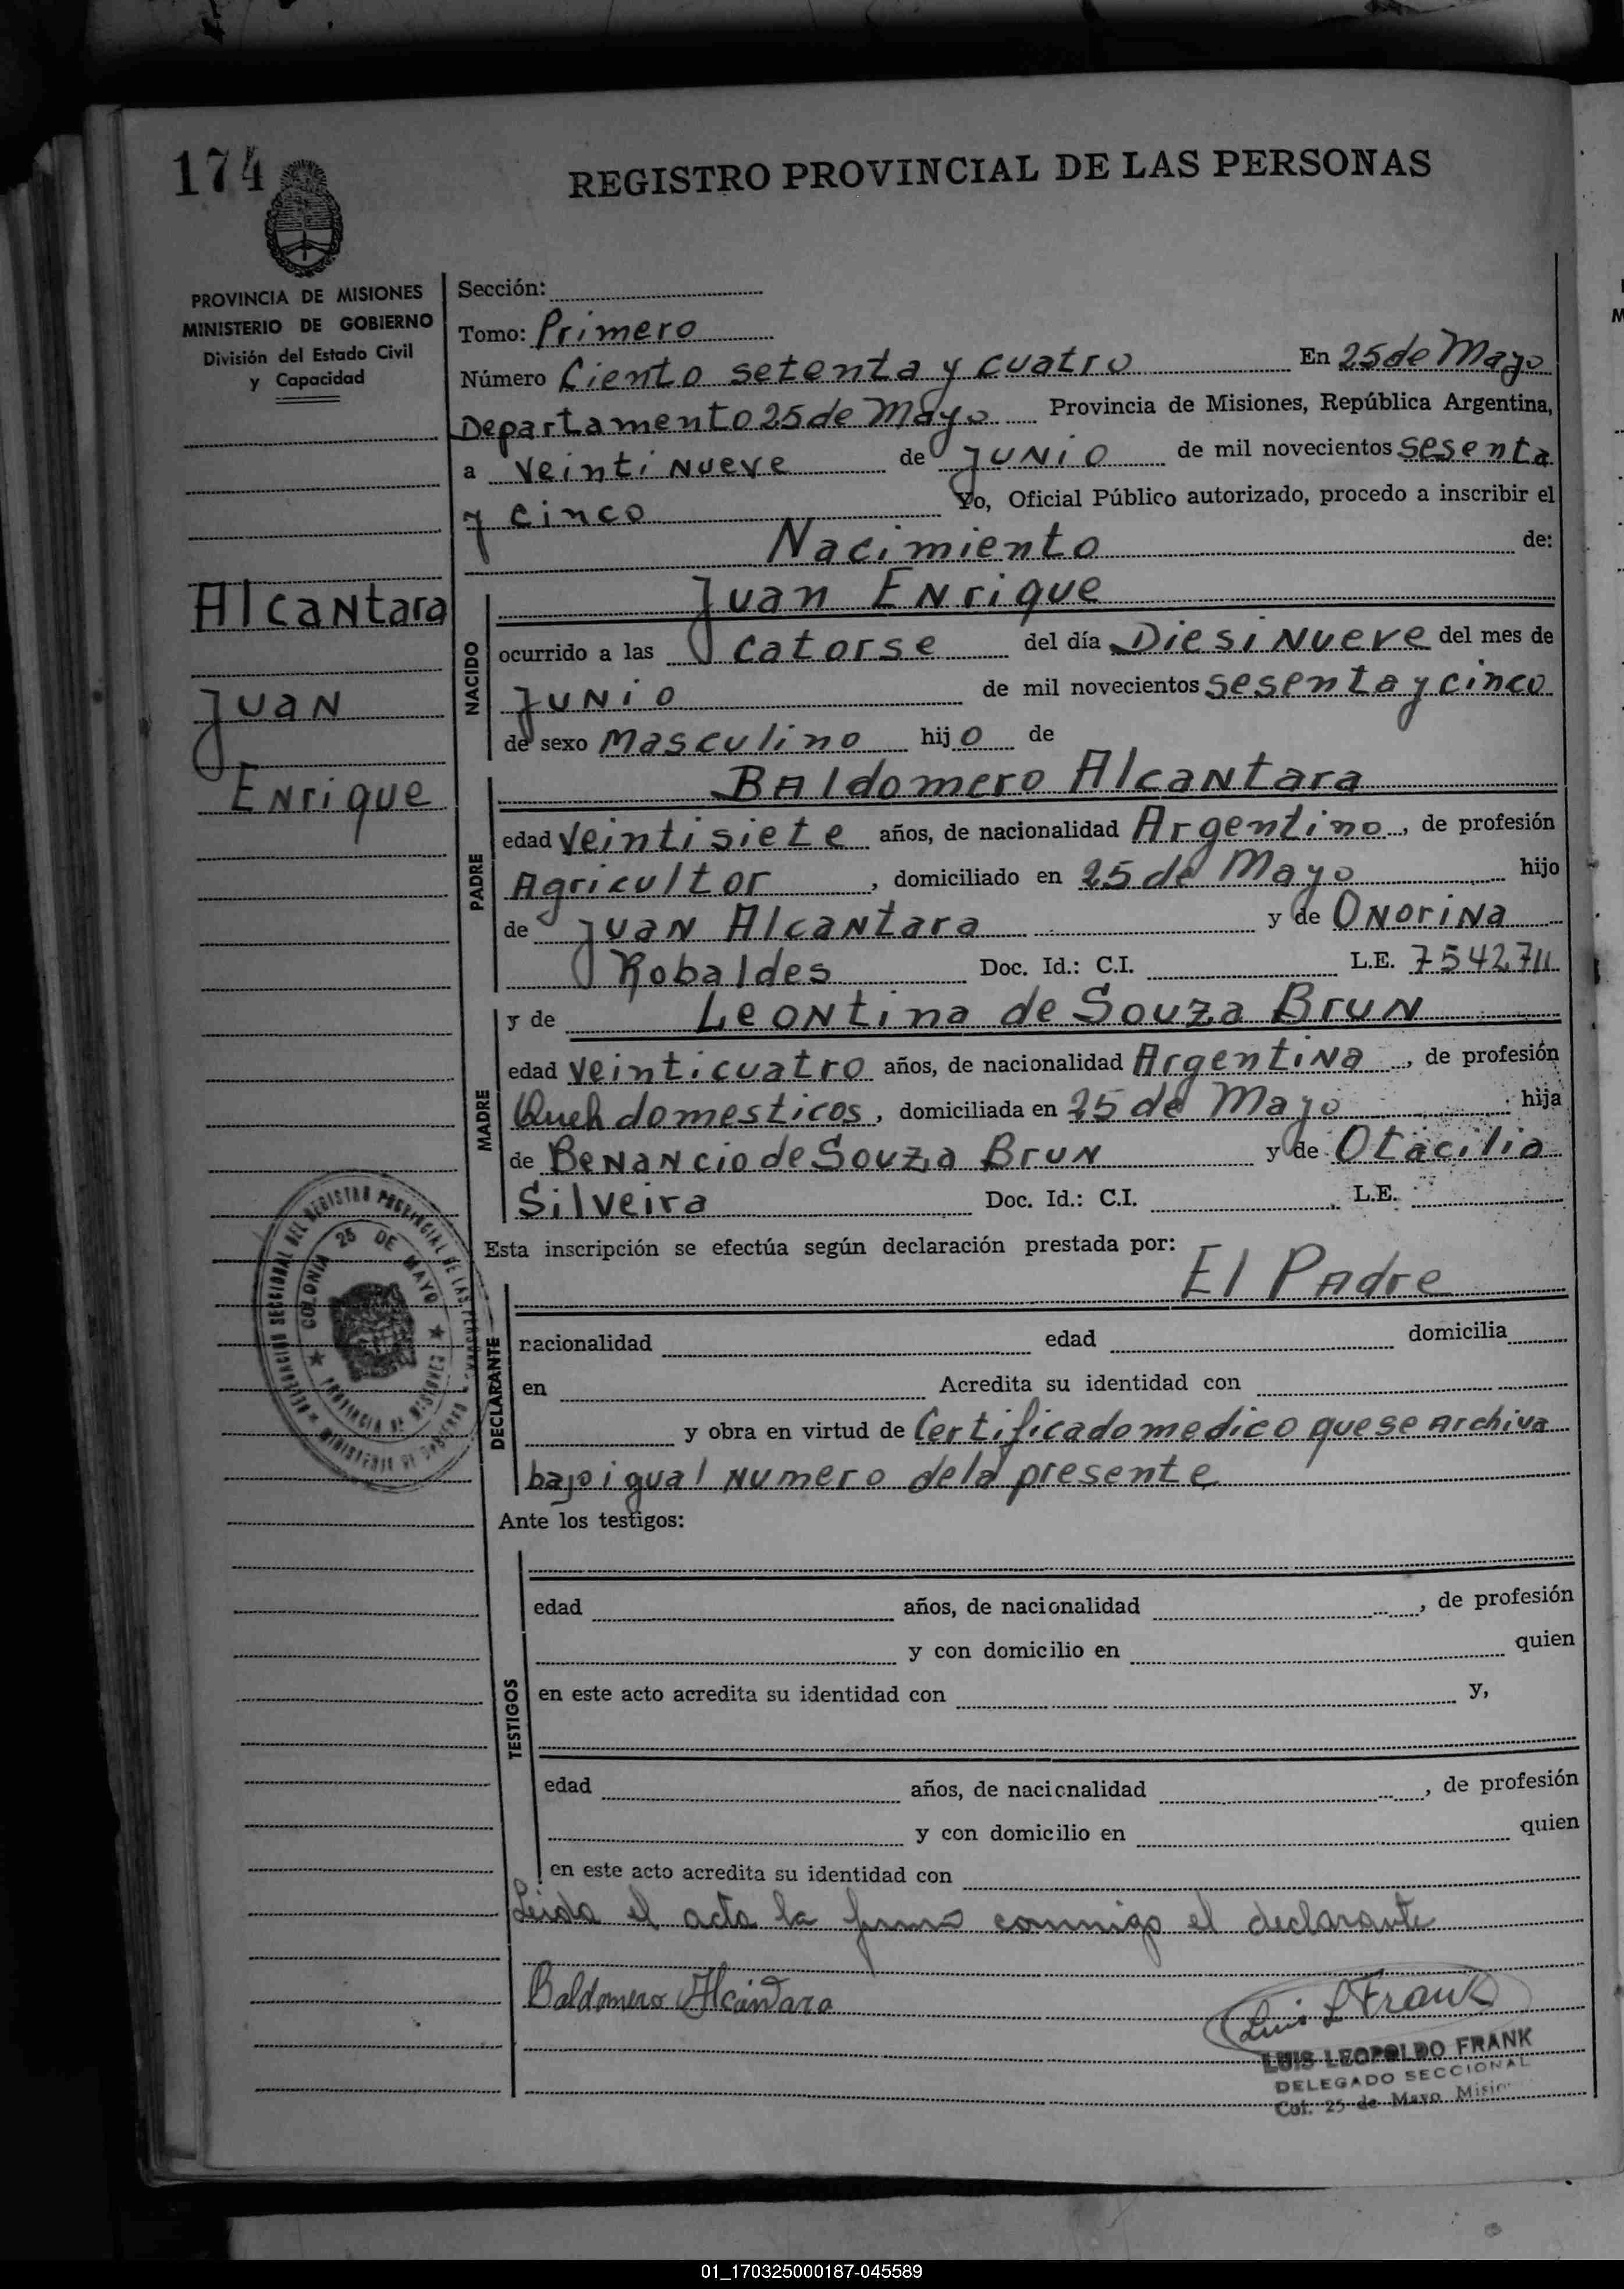 174
REGISTRO PROVINCIAL DE LAS PERSONAS
PROVINCIA DE MISIONES
MINISTERIO DE GOBIERNO
División del Estado Civil
y Capacidad
Alcantara
Juan
Enrique
Sección:
Tomo: Primero
Número Ciento setenta y cuatro En 25 de Mayo
Departamento 25 de Mayo Provincia de Misiones, República Argentina,
a veinti nueve de junio de mil novecientos sesenta
y cinco Yo, Oficial Público autorizado, procedo a inscribir el
Nacimiento de:
NACIDO
Juan Enrique
ocurrido a las catorse del día Diesinueve del mes de
junio de mil novecientos sesenta y cinco
de sexo masculino hijo de
PADRE
Baldomero Alcantara
edad veintisiete años, de nacionalidad Argentino, de profesión
Agricultor, domiciliado en 25 de Mayo hijo
de Juan Alcantara y de Onorina
Robaldes Doc. Id.: C.I. L.E. 7542711
MADRE
y de Leontina de Souza Brun
edad veinticuatro años, de nacionalidad Argentina, de profesión
Queh domesticos, domiciliada en 25 de Mayo hija
de Benancio de Souza Brun y de Otacilia
Silveira Doc. Id.: C.I. L.E.
Esta inscripción se efectúa según declaración prestada por:
DECLARANTE
El Padre
nacionalidad edad domicilia
en Acredita su identidad con
y obra en virtud de Certificado medico que se archiva
bajo igual numero de la presente
COLONIA 25 DE MAYO
PROVINCIA DE MISIONES
Ante los testigos:
TESTIGOS
edad años, de nacionalidad , de profesión
y con domicilio en quien
en este acto acredita su identidad con y,
edad años, de nacionalidad , de profesión
y con domicilio en quien
en este acto acredita su identidad con
Leida el acta la firma conmigo el declarante
Baldomero Alcantara
Luis L Frank
LUIS LEOPOLDO FRANK
DELEGADO SECCIONAL
Col. 25 de Mayo
01_170325000187-045589